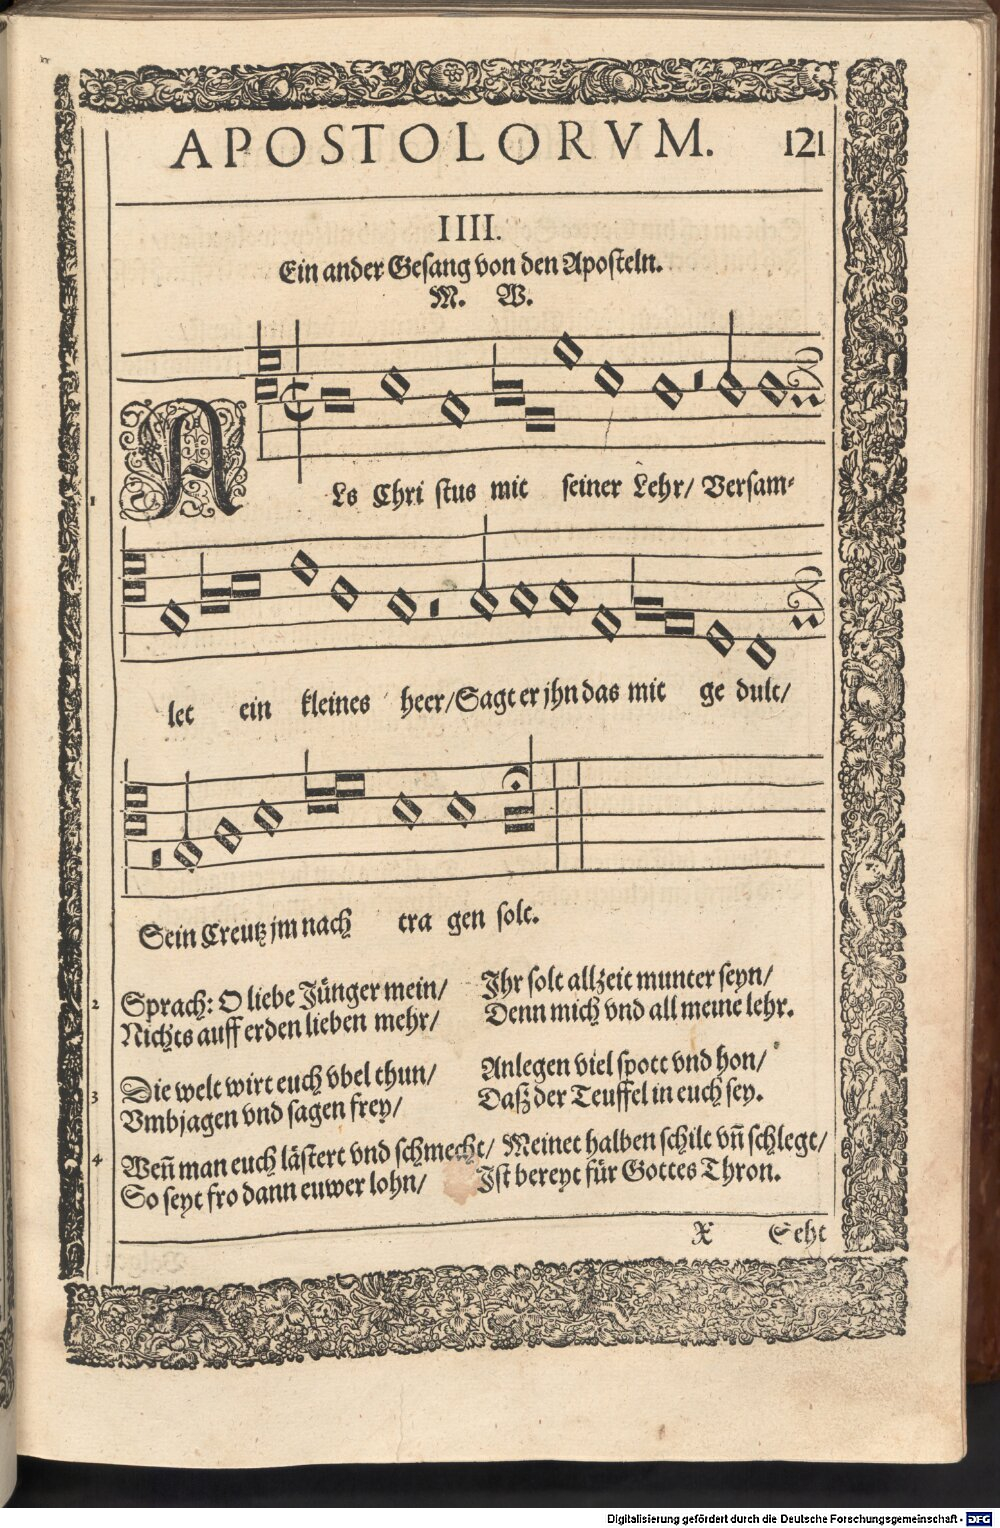 APOSTOLORVM. 121
IIII.
Ein ander Gesang von den Aposteln.
M. W.
1 ALs Chri stus mit seiner Lehr/ Versam-
let ein kleines heer/ Sagt er jhn das mit ge dult/
Sein Creutz jm nach tra gen solt.
2 Sprach: O liebe Jünger mein/ Jhr solt allzeit munter seyn/
Nichts auff erden lieben mehr/ Denn mich vnd all meine lehr.
3 Die welt wirt euch vbel thun/ Anlegen viel spott vnd hon/
Vmbjagen vnd sagen frey/ Dasz der Teuffel in euch sey.
4 Weñ man euch lästert vnd schmecht/ Meinet halben schilt vñ schlegt/
So seyt fro dann euwer lohn/ Jst bereyt für Gottes Thron.
X Seht
Digitalisierung gefördert durch die Deutsche Forschungsgemeinschaft - DFG